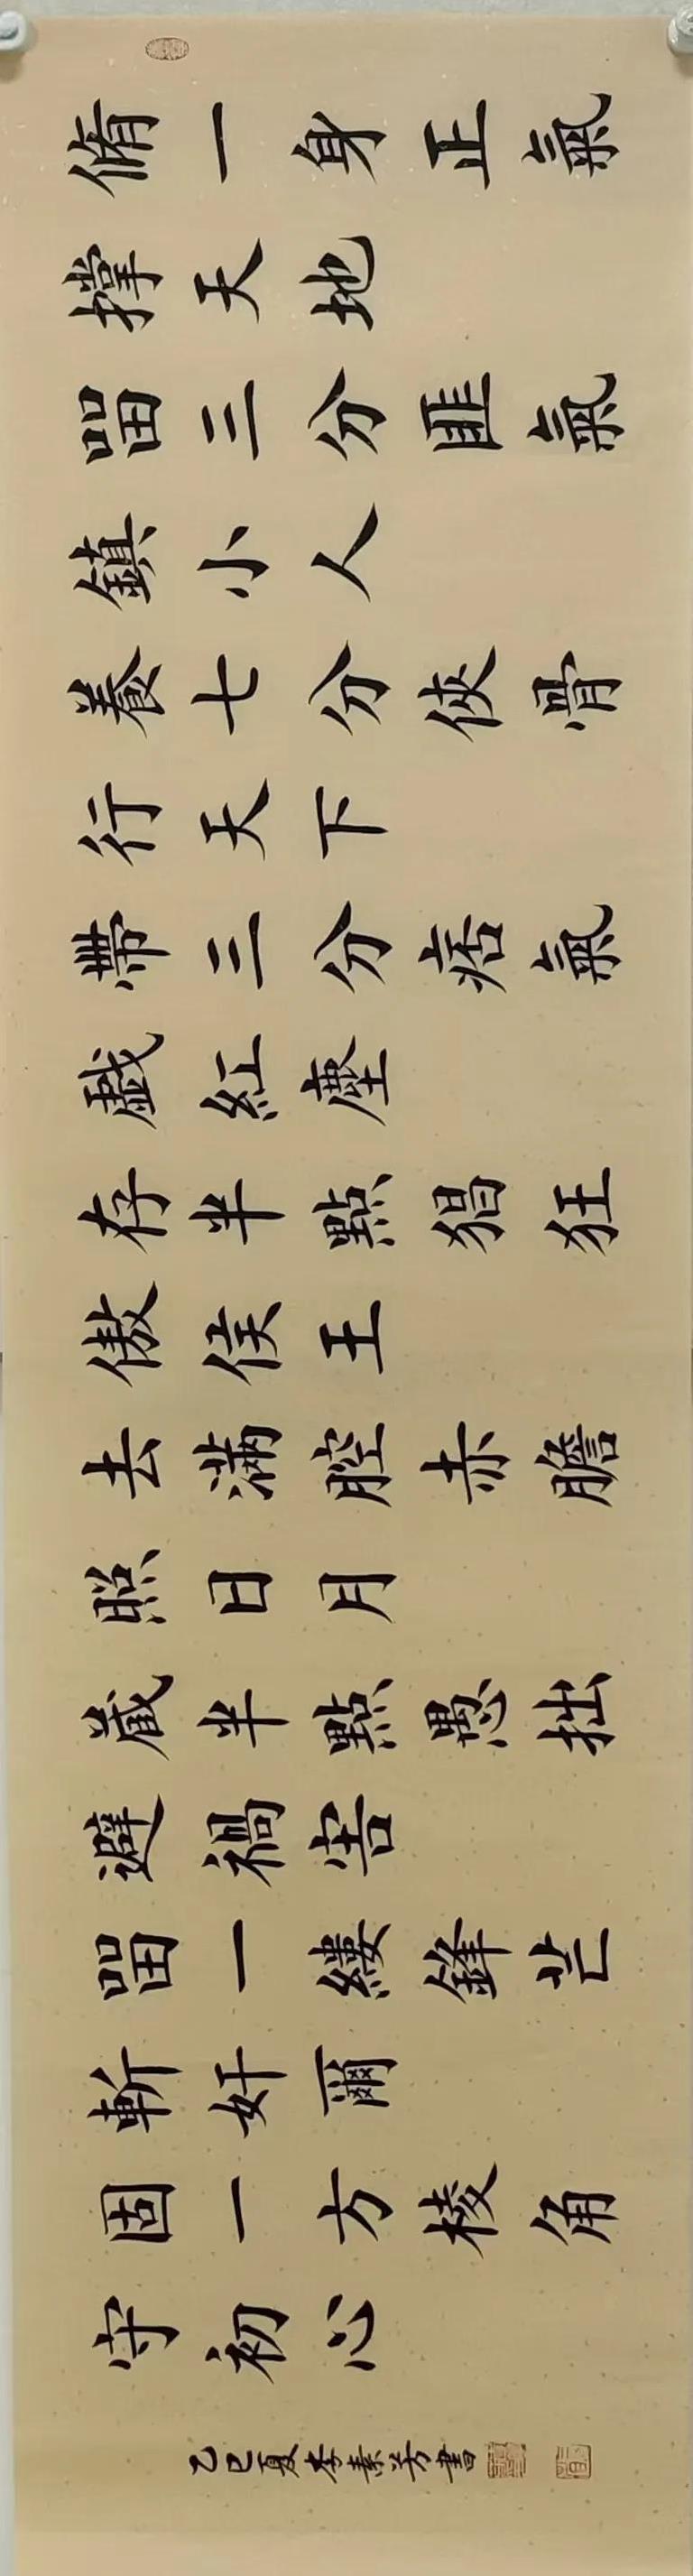 脩一身正氣
撐天地
留三分匪氣
鎮小人
養七分俠骨
行天下
帶三分痞氣
戲紅塵
存半點猖狂
傲侯王
去滿腔赤膽
照日月
藏半點愚拙
避禍害
留一縷鋒芒
斬奸爾
固一方棱角
守初心
乙巳夏李素芳書